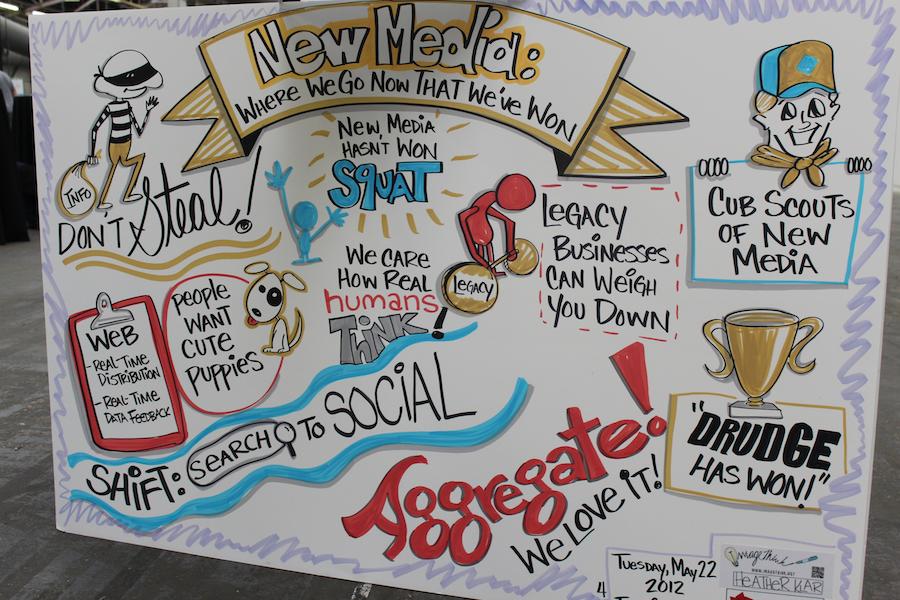 New Media:
Where We Go Now That We've Won
INFO
Don't Steal!
New Media
Hasn't Won
Squat
We care
how real
humans
think
!
Legacy
Legacy
Businesses
can weigh
you down
Cub Scouts
of New
Media
Web
- Real-Time
Distribution
- Real-Time
Data Feedback
People
want
cute
puppies
Shift: Search to Social
Aggregate!
We love it!
"Drudge
has won!"
Tuesday, May 22
2012
4
ImageThink
www.imagethink.net
Heather